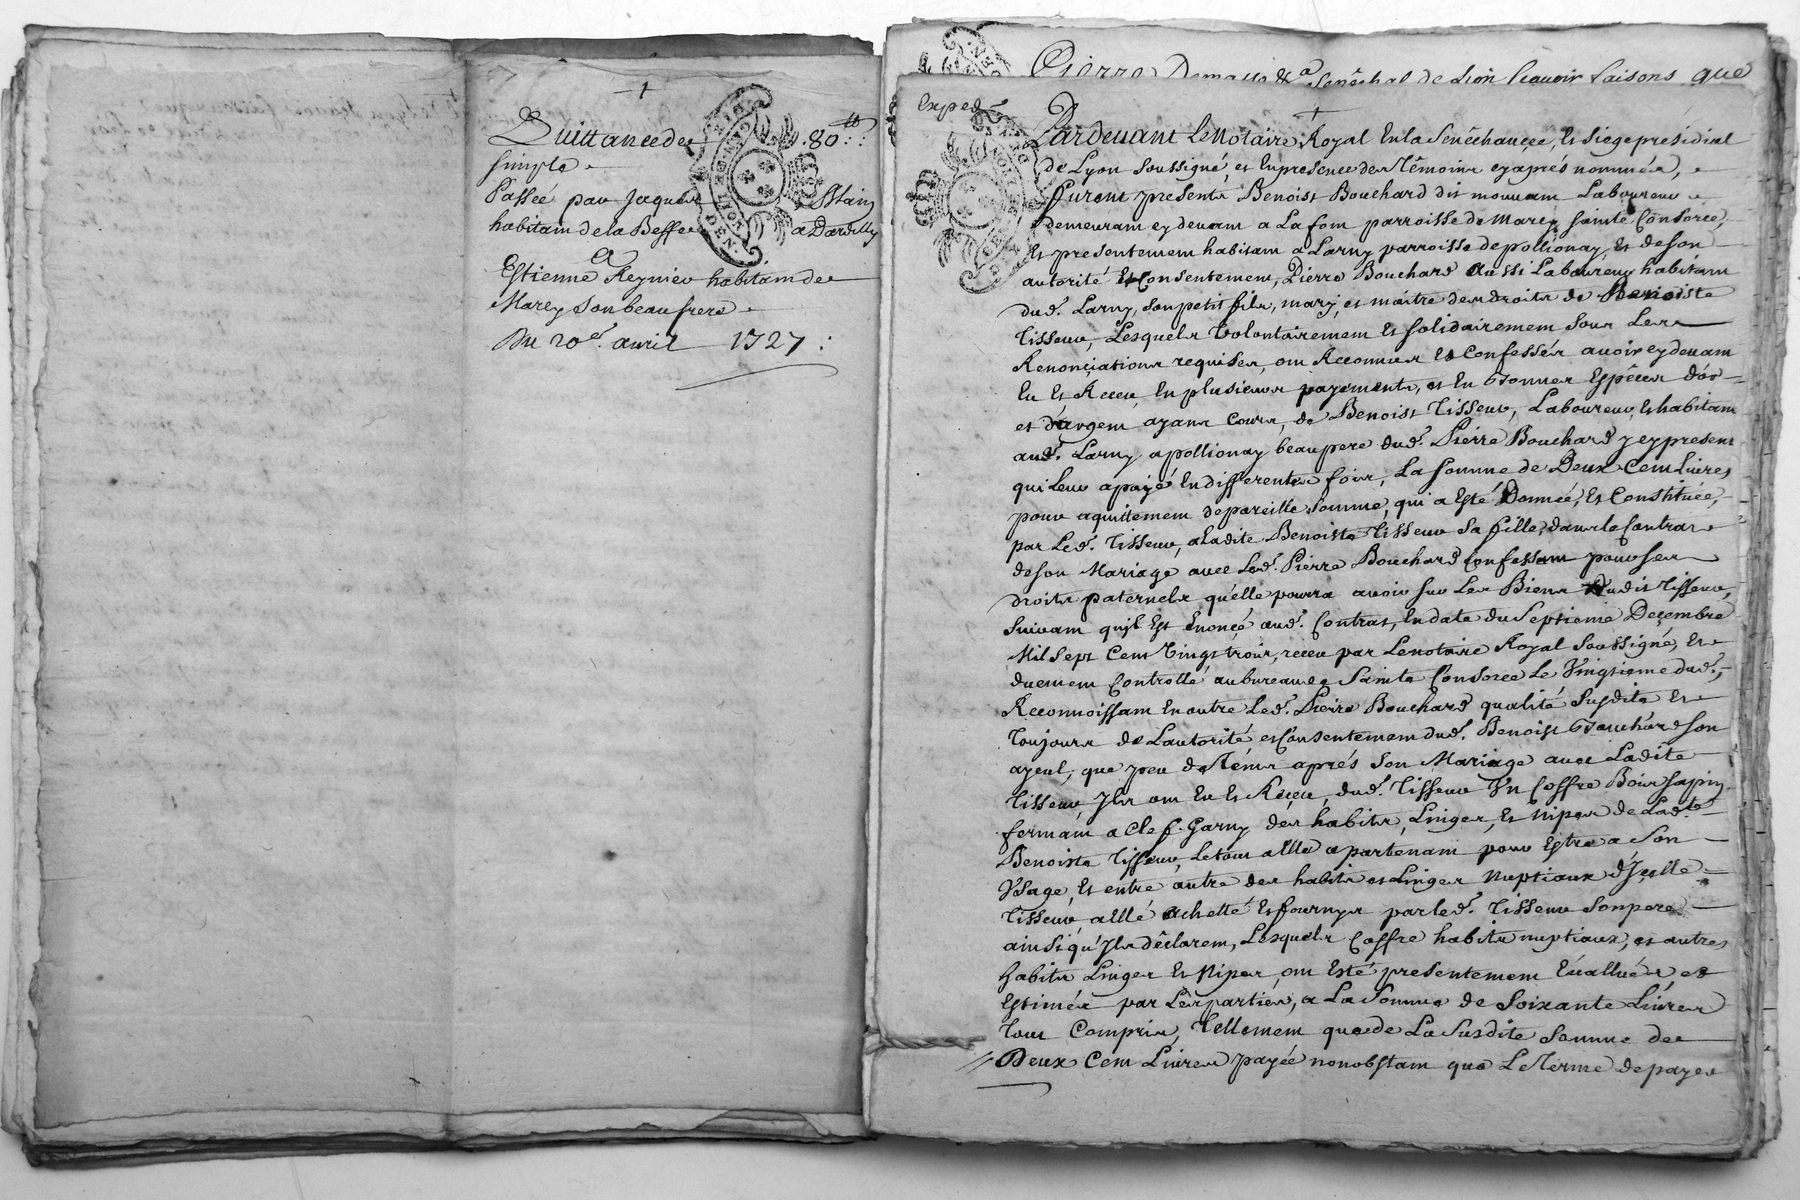 +
Quittance de 80ᵗᵗ:
simple.
Passée par Jaques Blain
habitant de la Beffe a Dardilly
a
Estienne Reynieu habitant de
Marcy son beau frere.
Du 20e. avril 1727:
Pierre Demasso &a senéchal de Lion scavoir faisons que
exped
+
Pardevant Le Notaire Royal En la Senêchaucée, Et Siege présidial
de Lyon soussigné, et En presence des Têmoins cy aprés nommés,
furent presents Benoist Bouchard dit mouvam Laboureur
demeurant cy devant a La fon parroisse de Marcy sainte Consorce,
Et presentement habitant a Larny parroisse de pollionay, Et de son
autorité Et Consentement, Pierre Bouchard aussi Laboureur habitant
dud. Larny, son petit fils, mary, et maitre des droits de Benoiste
Tisseur, Lesquels Volontairement Et solidairement sous Les
Renonciations requises, ont Reconnus Et Confessés avoir cy devant
Eu Et Receu, En plusieurs payements, et En bonnes Espêces d'or
et d'argent ayant cours, de Benoist Tisseur, Laboureur, Et habitant
aud. Larny a pollionay beau pere dud. Pierre Bouchard y cy present
qui Leur a payé En differentes fois, La somme de Deux Cent Livres
pour aquittement de pareille somme, qui a Esté Donnée, Et Constituée,
par Led. Tisseur, a Ladite Benoiste Tisseur sa fille, dans le Contrat
de son Mariage avec Led. Pierre Bouchard Confessant pour ses
droits paternels qu'elle pourra avoir sur Les Biens Dudit Tisseur,
suivant qu'jl Est Enoncé aud. Contrat, En date du Septiême Deçembre
Mil Sept Cent Vingt trois, receu par Le notaire Royal Soussigné, Et
duement Controllé au bureau de Sainte Consorce Le Vingtiême dud.,
Reconnoissant En outre Led. Pierre Bouchard qualité Susdite Et
Toujours de L'autorité et Consentement dud. Benoist Bouchard son
ayeul, que peu de Tems aprés Son Mariage avec Ladite
Tisseur, Jls ont Eu Et Reçeu, dud. Tisseur Vn Coffre Bois sapin
fermant a Clef, Garny des habits, Linges, Et Nipes de Lad.te
Benoiste Tisseur, Le tout a Elle apartenant pour Estre a Son
Vsage, Et entre autre des habits et Linges Nuptiaux d'Jçelle
Tisseur, a Ellé achetté Et fournys par led. Tisseur Son pere
ainsi qu'Jls dêclarent, Lesquels Coffre habits nuptiaux, et autres
habits Linges Et Nipes, ont Esté presentement Evallués et
Estimés par Les parties, a La Somme de Soixante Livres
Tout Compris, Tellement que de La Susdite Somme de
Deux Cent Livres payée nonobstant que Le Terme de payer